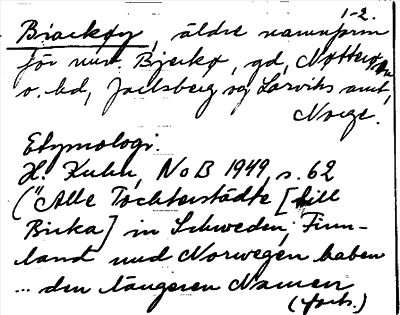 1-2.
Biackøy, äldre namnform
för nuv. Bjerkø, gd, Nøtterø
o. hd, Jarlsberg og Larviks amt,
Norge.
Etymologi:
H. Kuhn, NoB 1949, s. 62
("Alle Tochterstädte [till
Birka] in Schweden, Finn-
land und Norwegen haben
... den längeren Namen
(forts.)